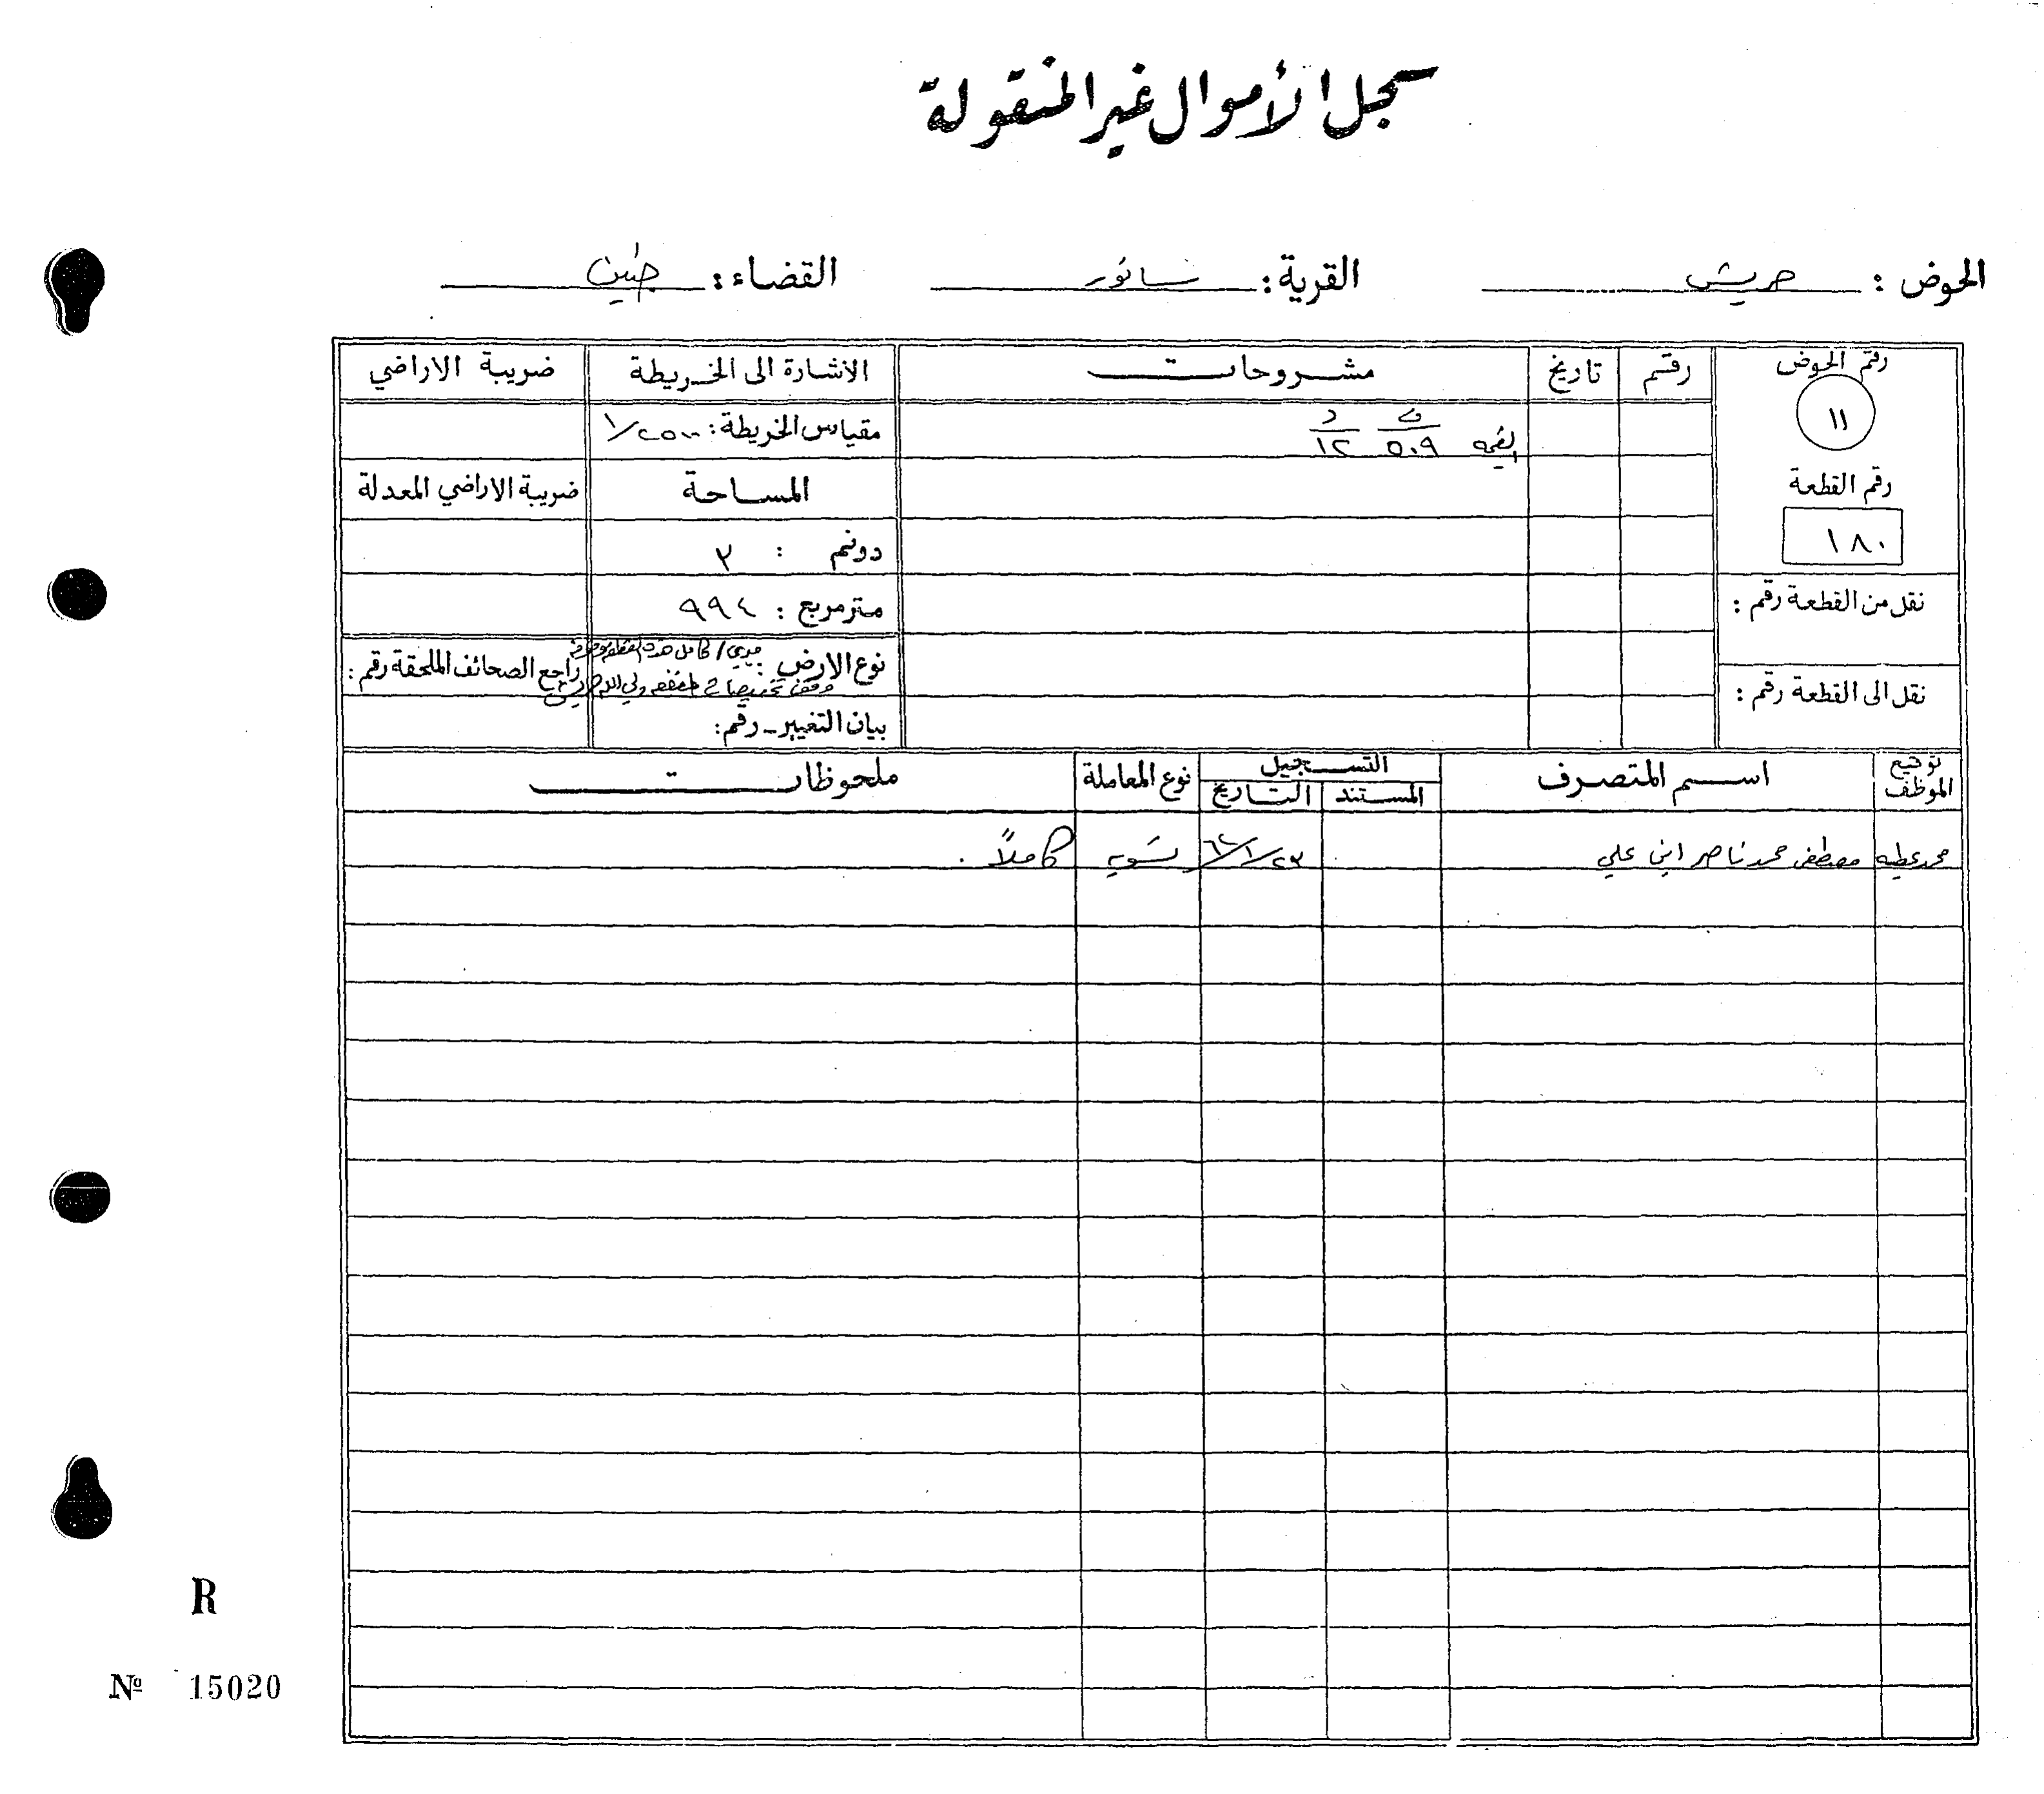 سجل الأموال غير المنقولة
الحوض : حريش القرية : سانور القضاء : جنين
رقم الحوض رقم تاريخ مشروحات الاشارة الى الخريطة ضريبة الاراضي
١١ القيمة ف ٥٠٩ د ١٢ مقياس الخريطة : ١/٢٥٠٠
رقم القطعة المساحة ضريبة الاراضي المعدلة
١٨٠ دونم : ٢
نقل من القطعة رقم : متر مربع : ٩٩٤
نوع الارض : ميري / كامل هذه القطعة موقوفة راجع الصحائف الملحقة رقم :
وقف تخصيصات ولي الله حريش
نقل الى القطعة رقم : بيان التغيير - رقم :
توقيع الموظف اسم المتصرف التسجيل نوع المعاملة ملحوظات
المستند التاريخ
محمد عطيه مصطفى محمد ناصر ابن علي ٢٣/١/٦٤ تسويه كاملاً .
R
Nº 15020